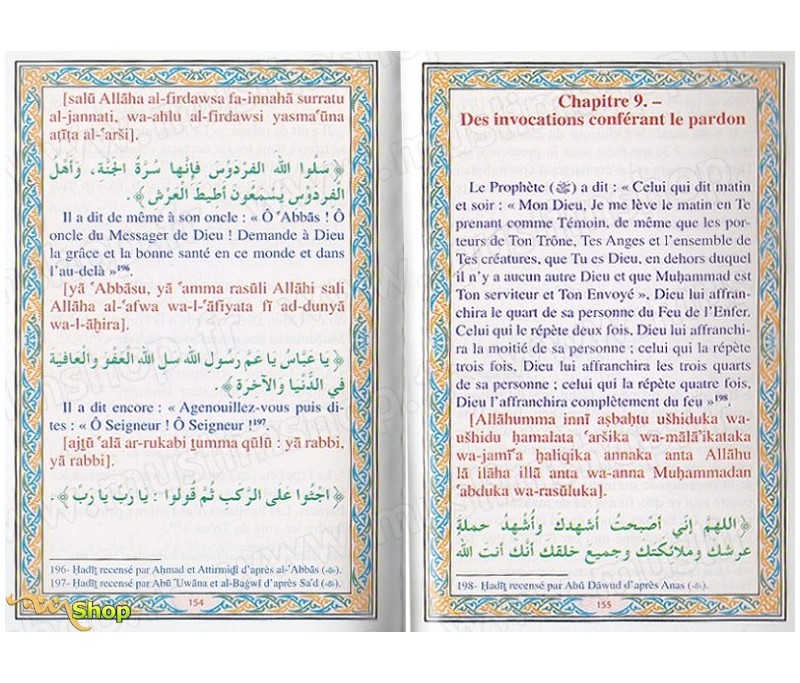 [salū Allāha al-firdawsa fa-innahā surratu
al-jannati, wa-ahlu al-firdawsi yasmaʿūna
aṭīṭa al-ʿarši].
﴿ سَلُوا الله الفِرْدَوْسَ فَإِنَّها سُرَّةُ الجَنَّة، وَأَهْلُ
الْفِرْدَوْسِ يَسْمَعُونَ أَطِيطَ الْعَرْش ﴾.
Il a dit de même à son oncle : « Ô ʿAbbās ! Ô
oncle du Messager de Dieu ! Demande à Dieu
la grâce et la bonne santé en ce monde et dans
l'au-delà »196.
[yā ʿAbbāsu, yā ʿamma rasūli Allāhi sali
Allāha al-ʿafwa wa-l-ʿāfiyata fī ad-dunyā
wa-l-āḫira].
﴿ يا عَبَّاسُ يا عَمَّ رَسُولِ الله سَلِ الله الْعَفْوَ والْعافية
في الدُّنْيا وَالآخِرَة ﴾.
Il a dit encore : « Agenouillez-vous puis di-
tes : « Ô Seigneur ! Ô Seigneur !197.
[ajṯū ʿalā ar-rukabi ṯumma qūlū : yā rabbi,
yā rabbi].
﴿ اجْثُوا على الرُّكَبِ ثُمَّ قُولُوا : يا رَبِّ يا رَبِّ ﴾.
196- Ḥadīṯ recensé par Aḥmad et Attirmiḏī d'après al-ʿAbbās (ﷺ).
197- Ḥadīṯ recensé par Abū ʿUwāna et al-Baġwī d'après Saʿd (ﷺ).
154
Chapitre 9. –
Des invocations conférant le pardon
Le Prophète (ﷺ) a dit : « Celui qui dit matin
et soir : « Mon Dieu, Je me lève le matin en Te
prenant comme Témoin, de même que les por-
teurs de Ton Trône, Tes Anges et l'ensemble de
Tes créatures, que Tu es Dieu, en dehors duquel
il n'y a aucun autre Dieu et que Muḥammad est
Ton serviteur et Ton Envoyé », Dieu lui affran-
chira le quart de sa personne du Feu de l'Enfer.
Celui qui le répète deux fois, Dieu lui affranchi-
ra la moitié de sa personne ; celui qui la répète
trois fois, Dieu lui affranchira les trois quarts
de sa personne ; celui qui la répète quatre fois,
Dieu l'affranchira complètement du feu »198.
[Allāhumma innī aṣbaḥtu ušhiduka wa-
ušhidu ḥamalata ʿaršika wa-mālāʾikataka
wa-jamīʿa ḫaliqika annaka anta Allāhu
lā ilāha illā anta wa-anna Muḥammadan
ʿabduka wa-rasūluka].
﴿ اللهمّ إني أصبحتُ أُشهدك وأُشهد حملة
عرشك وملائكتك وجميع خلقك أنّك أنت الله
198- Ḥadīṯ recensé par Abū Dāwud d'après Anas (ﷺ).
155
Shop